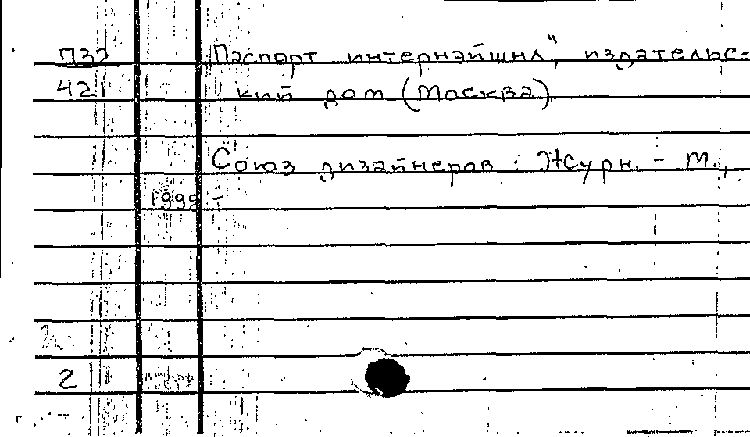 П32 "Паспорт интернэйшнл", издательс-
42 кий дом (Москва)
Союз дизайнеров : Журн. - М.,
1999 -
2